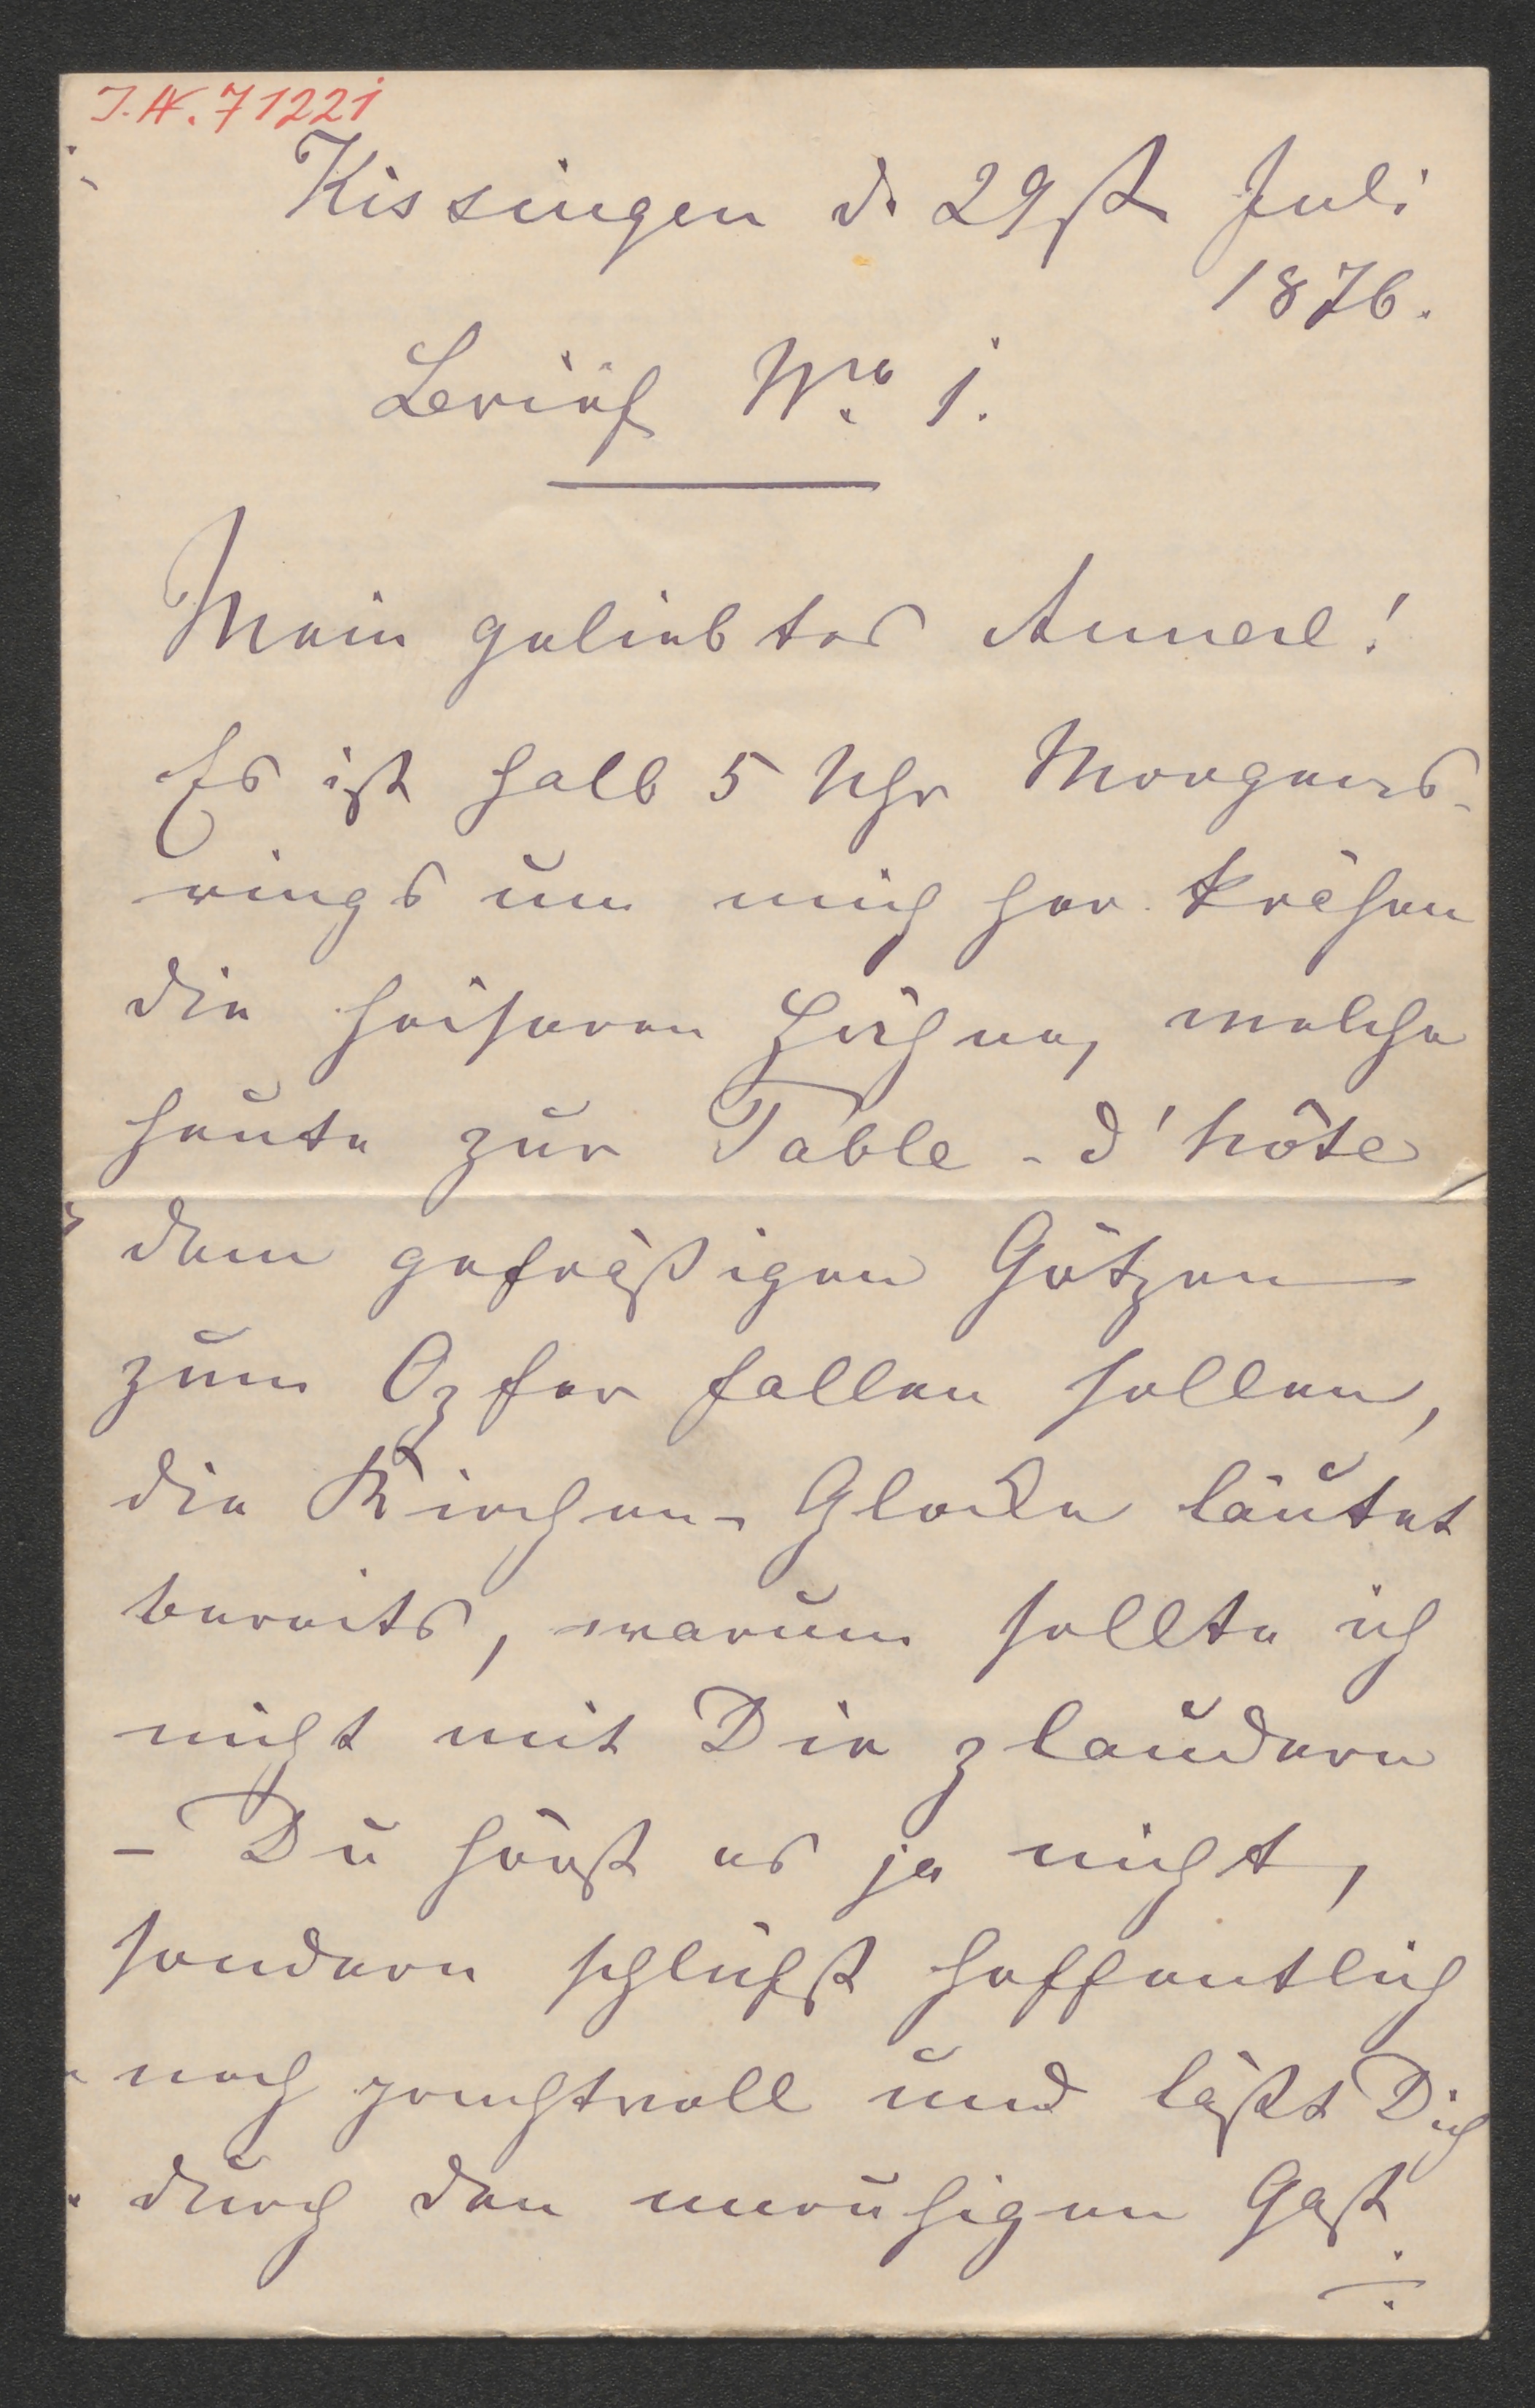 I.N. 71221
Kissingen d. 29st Juli
1876.
Brief Nro 1.
Mein geliebtes Annerl!
Es ist halb 5 Uhr Morgens-
rings um mich her krähen
die heiseren Hähne, welche
heute zur Table-d'hôte
dem gefräßigen Götzen
zum Opfer fallen sollen,
die Kirchen-Glocke läutet
bereits, warum sollte ich
nicht mit Dir plaudern
- Du hörst es ja nicht,
sondern schläfst hoffentlich
noch prachtvoll und läßt Dich
durch den unruhigen Gast